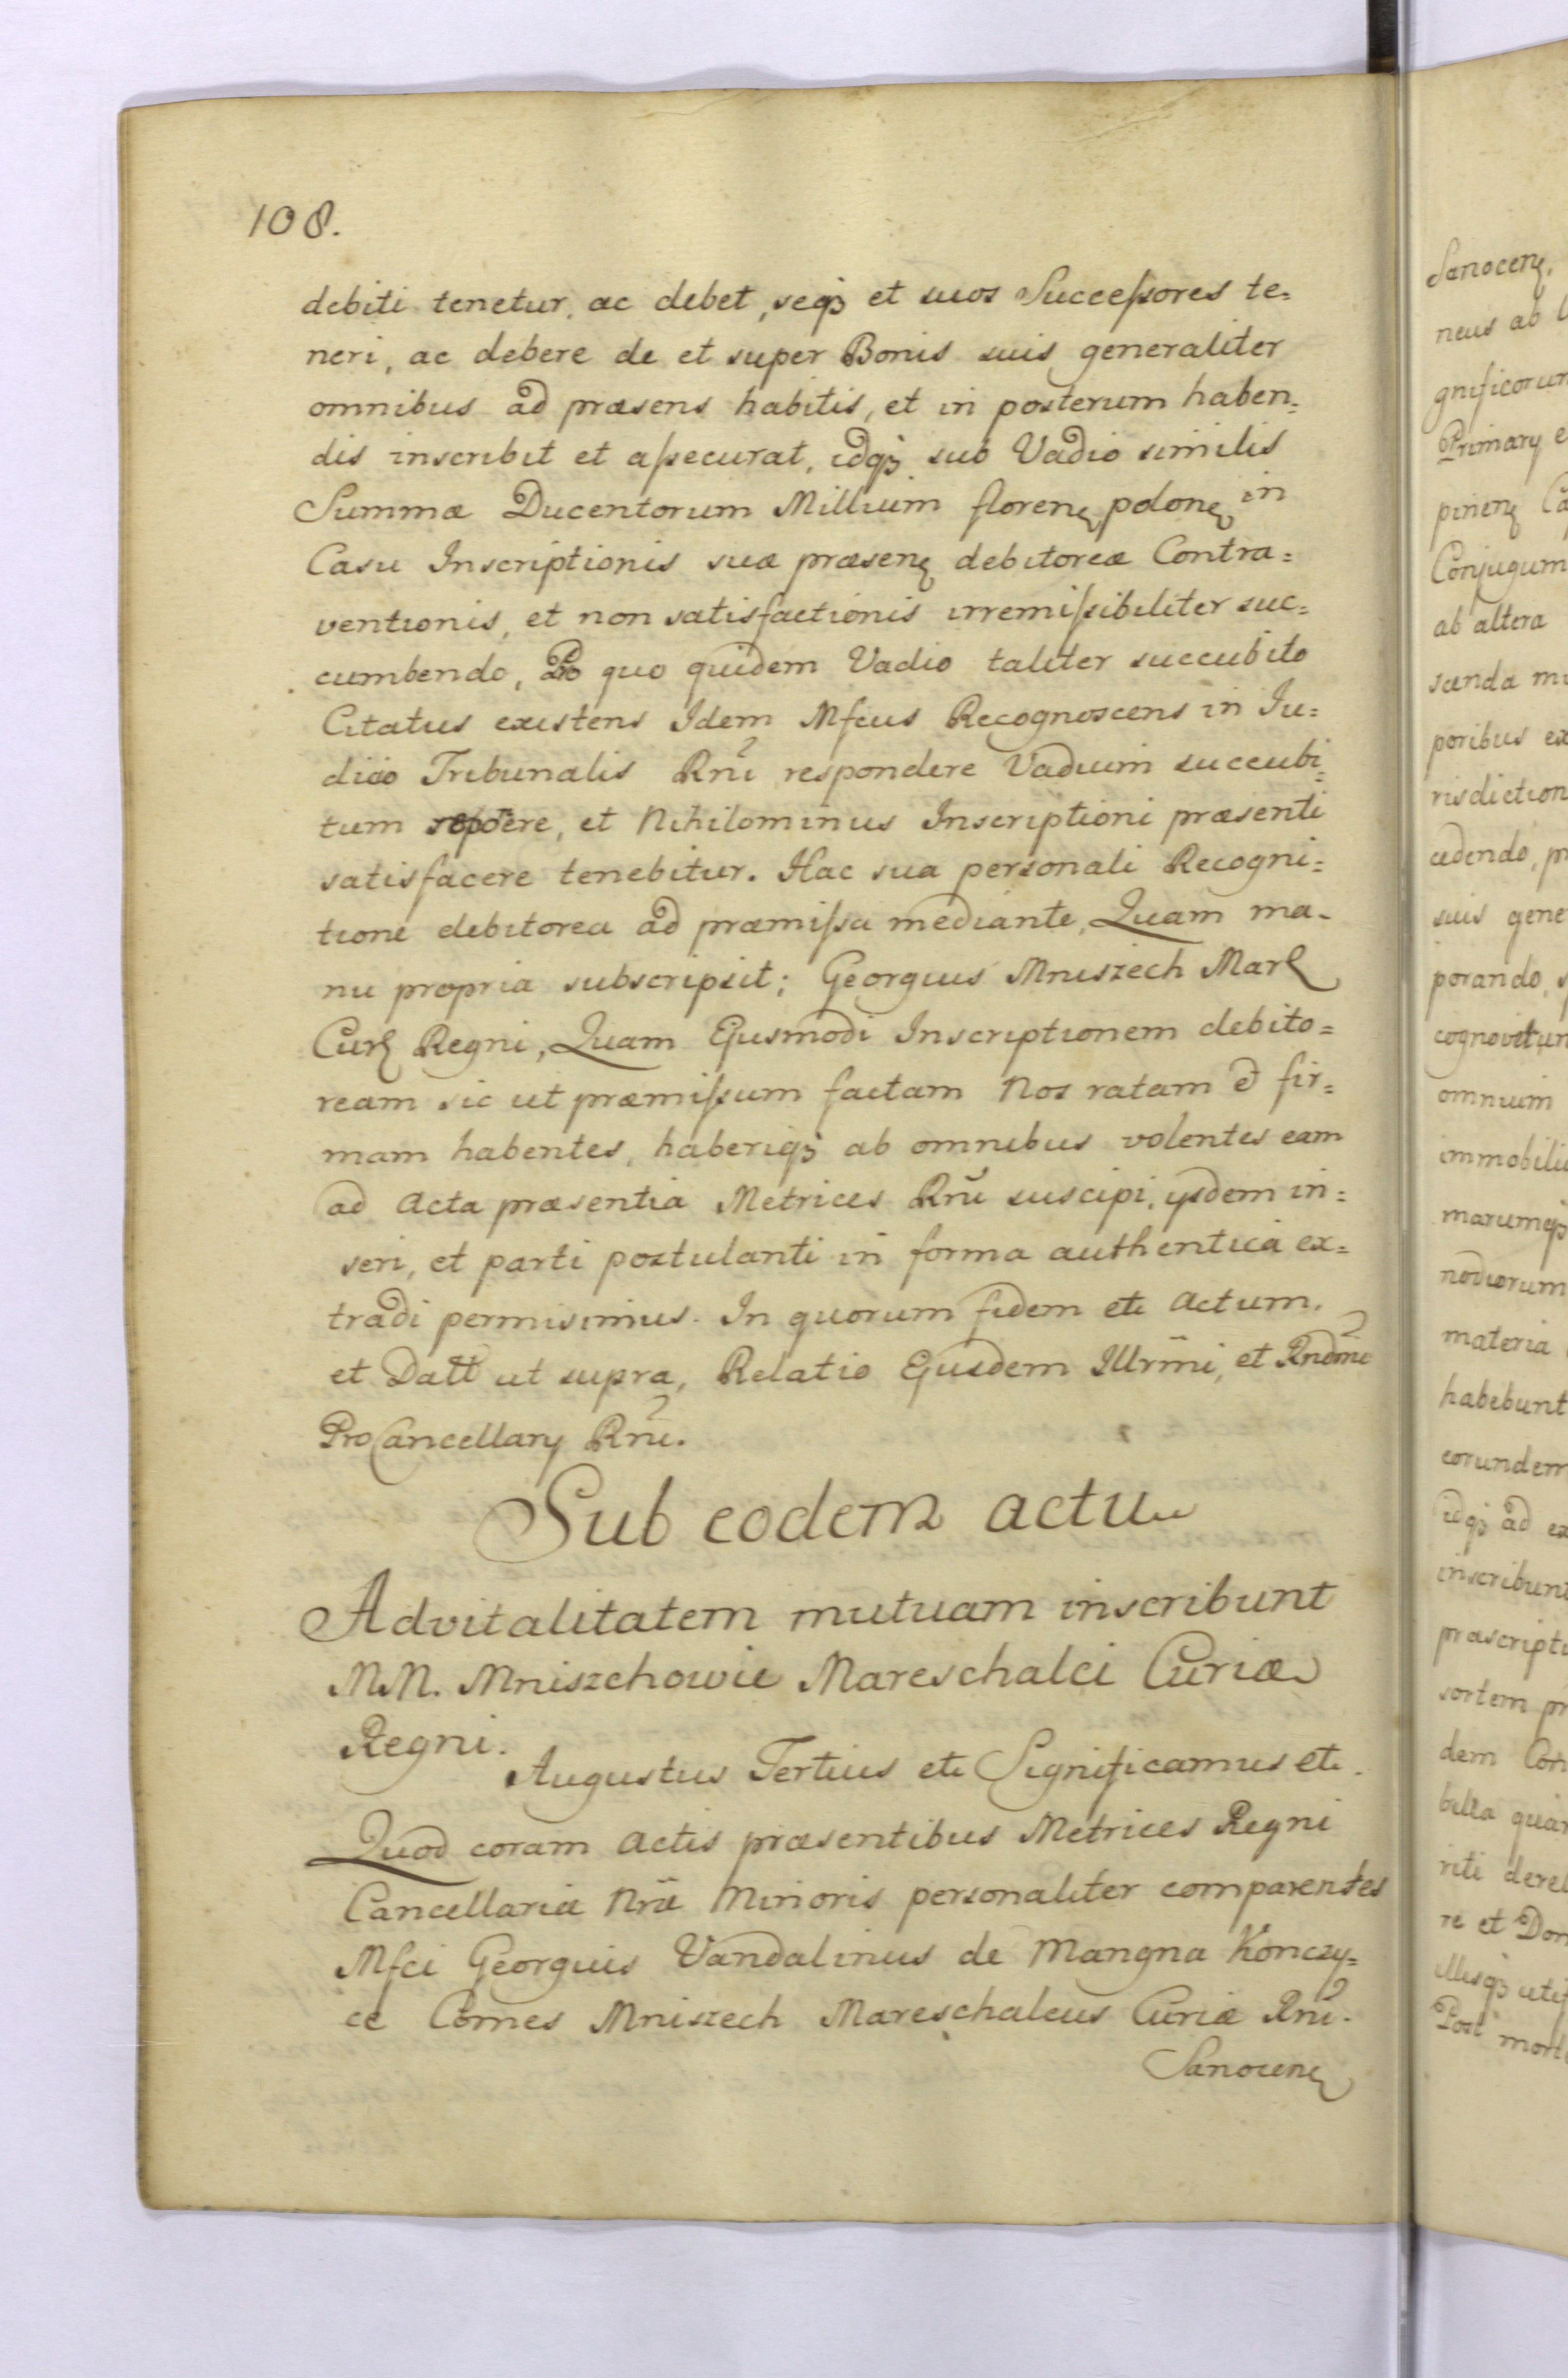 108.
debiti tenetur, ac debet, seqꝫ et suos Succeſsores te=
neri, ac debere de et super Bonis suis generaliter
omnibus ad præsens habitis, et in posterum haben=
dis inscribit et aſsecurat, idqꝫ sub Vadio similis
Summæ Ducentorum Millium floren polon in
Casu Inscriptionis suæ præsen debitoreæ Contra=
ventionis, et non satisfactionis irremiſsibiliter suc=
cumbendo, Pro quo quidem Vadio taliter succubito
Citatus existens Idem Mfcus Recognoscens in Iu=
dicio Tribunalis Rni respondere Vadium succubi=
tum et Nihilominus Inscriptioni præsenti
satisfacere tenebitur. Hac sua personali Recogni=
tione debitorea ad præmiſsa mediante, Quam ma-
nu propria subscripsit; Georgius Mniszech Mar
Cur Regni, Quam Ejusmodi Inscriptionem debito=
ream sic ut præmiſsum factam Nos ratam & fir=
mam habentes, haberiqꝫ ab omnibus volentes eam
ad Acta præsentia Metrices Rni suscipi, ysdem in=
seri, et parti postulanti in forma authentica ex=
tradi permisimus. In quorum fidem etc Actum.
et Datt ut supra, Relatio Ejusdem Illrmi, et Rndmi
ProCancellary Rni.
Sub eodem actu
Advitalitatem mutuam inscribunt
MM. Mniszchowie Mareschalci Curiæ
Regni.
Augustus Tertius etc Significamus etc.
Quod coram Actis præsentibus Metrices Regni
Cancellariæ Nræ Minoris personaliter comparentes
Mfci Georgius Vandalinus de Mangna Konczy=
ce Comes Mniszech Mareschalcus Curiæ Rni.
Sanocen
Sanocen,
neus ab
gnificorum
Primary e
pinen Ca
Conjugum
ab altera
sanda mi
poribus ex
risdiction
cedendo, p
suis gene
porando, s
cognovitun
omnium
immobiliu
marumqꝫ
nodiorum
materia
habebunt
eorundem
idqꝫ ad ex
inscribunt
præscripti
sortem pr
dem Con
bella quan
riti derel
re et Don
illisqꝫ uti
Post morte